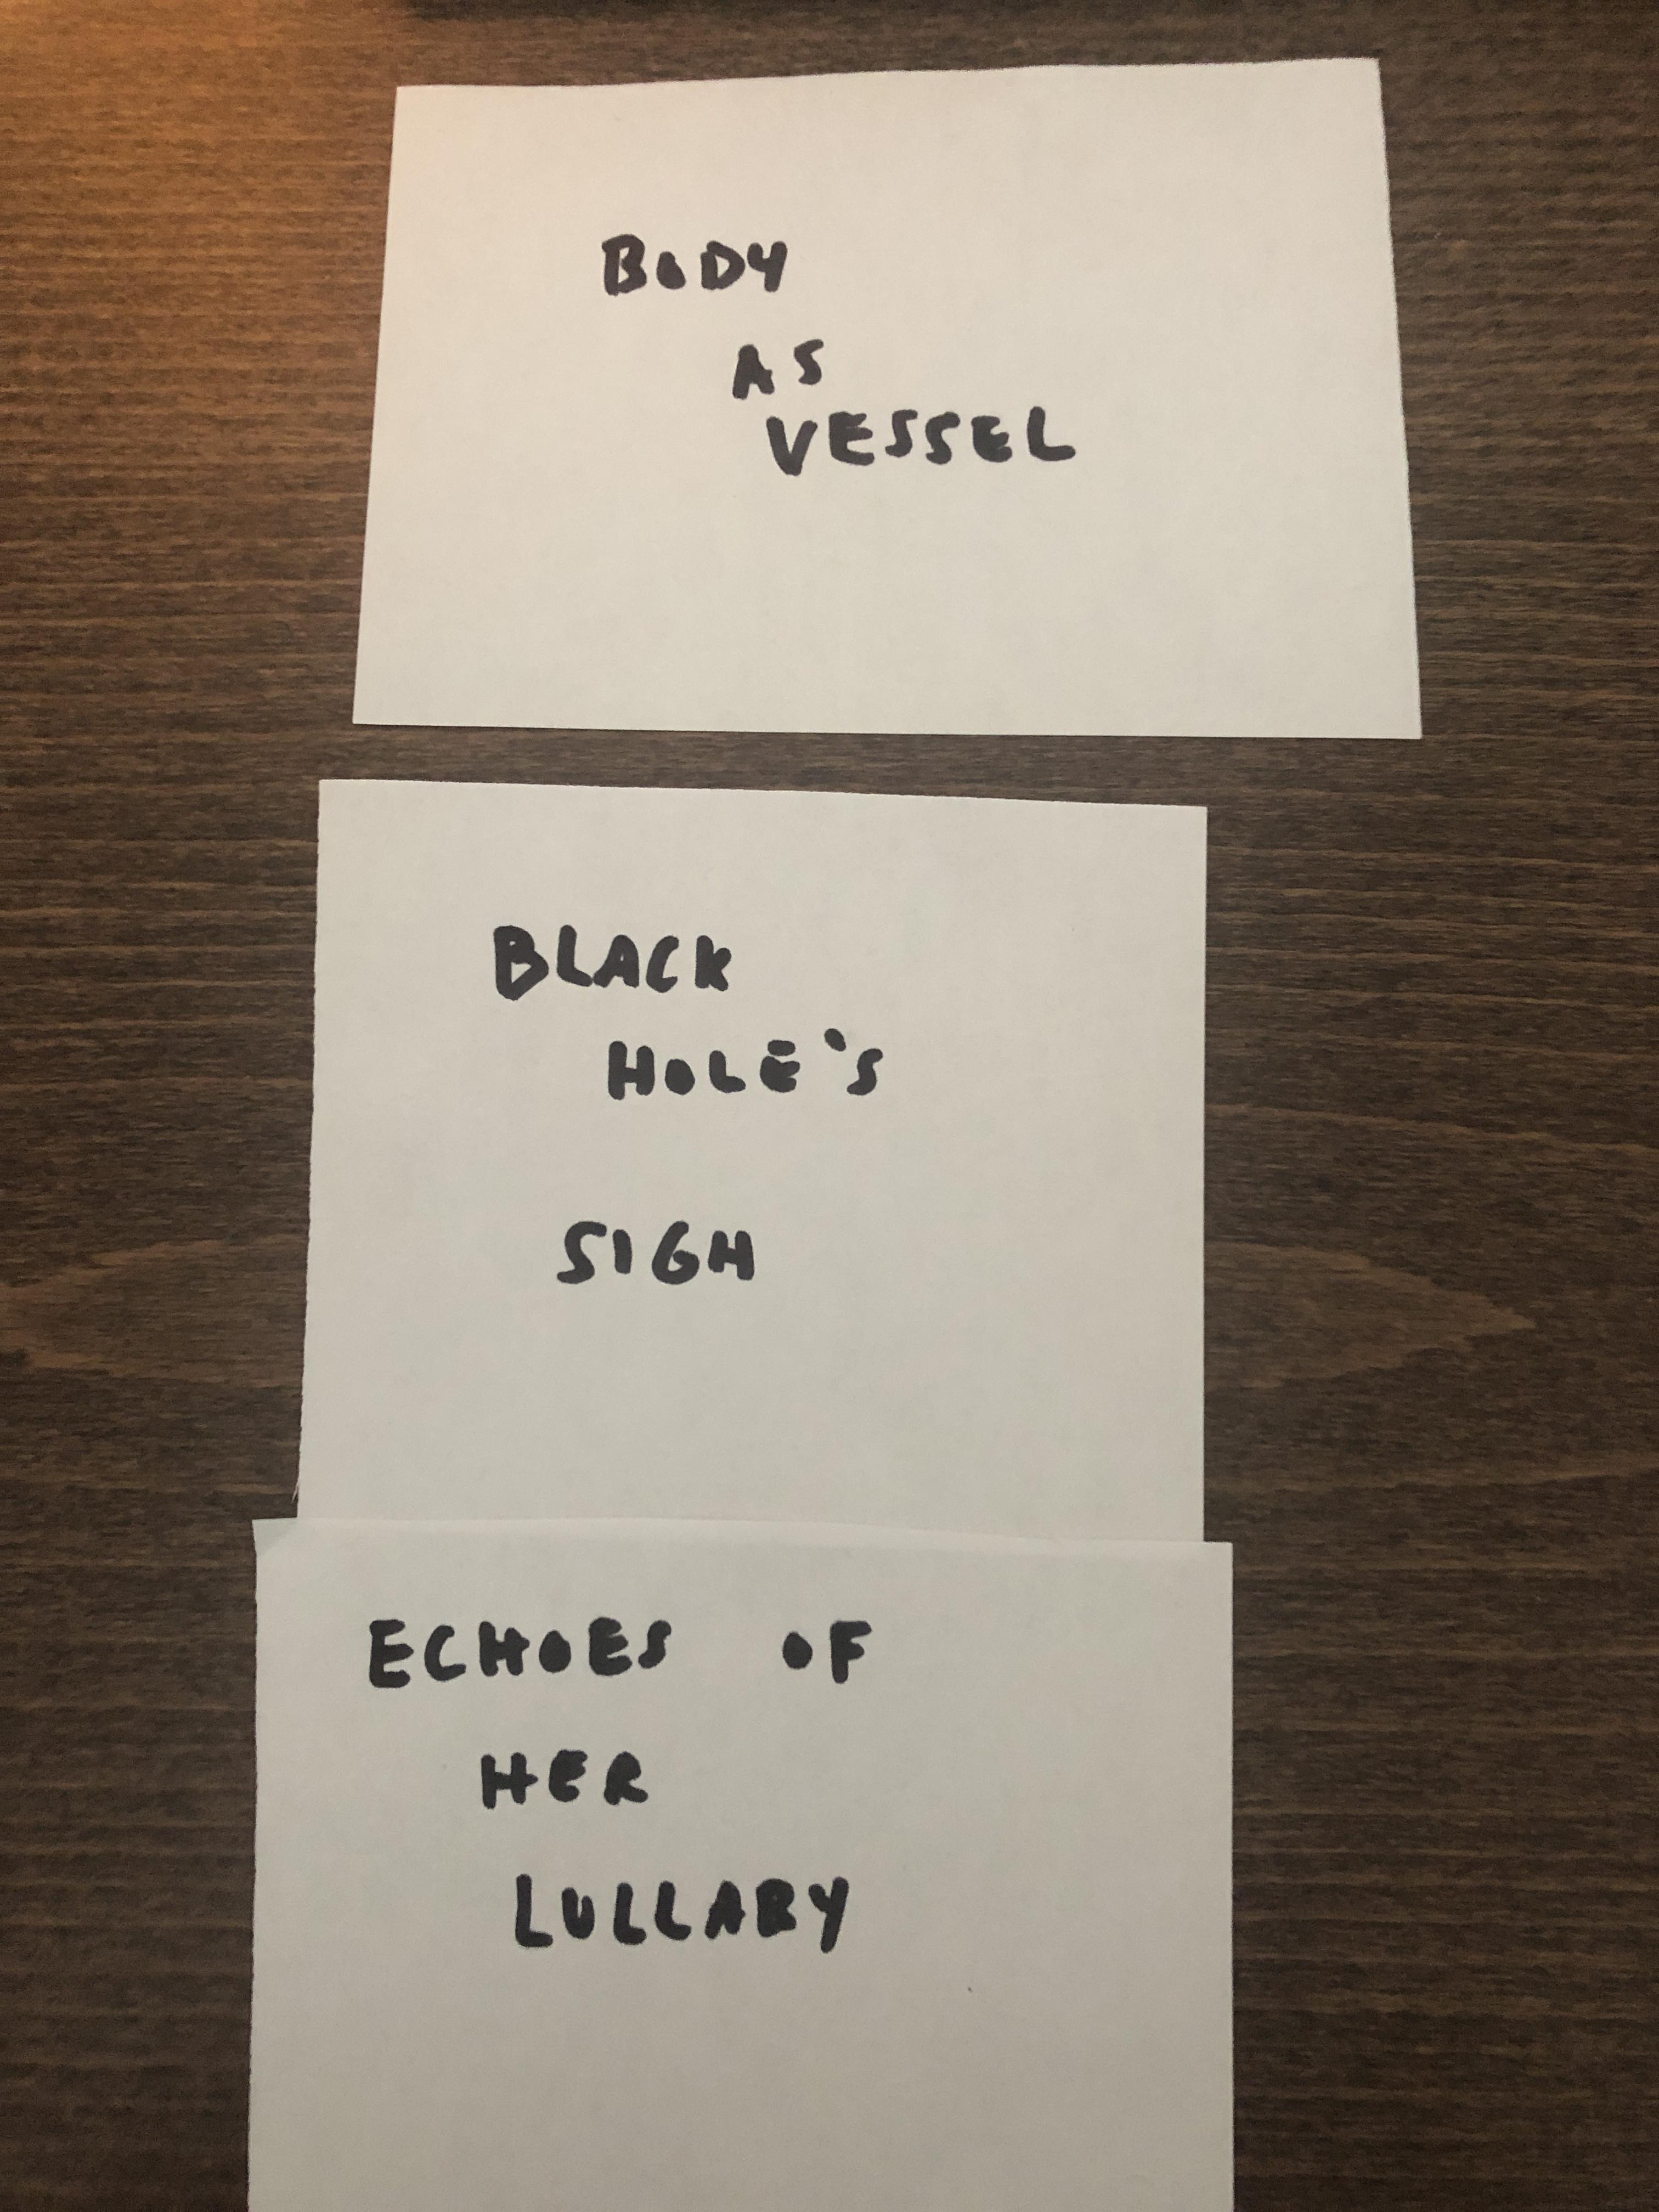 BODY
AS
VESSEL
BLACK
HOLE'S
SIGH
ECHOES OF
HER
LULLABY